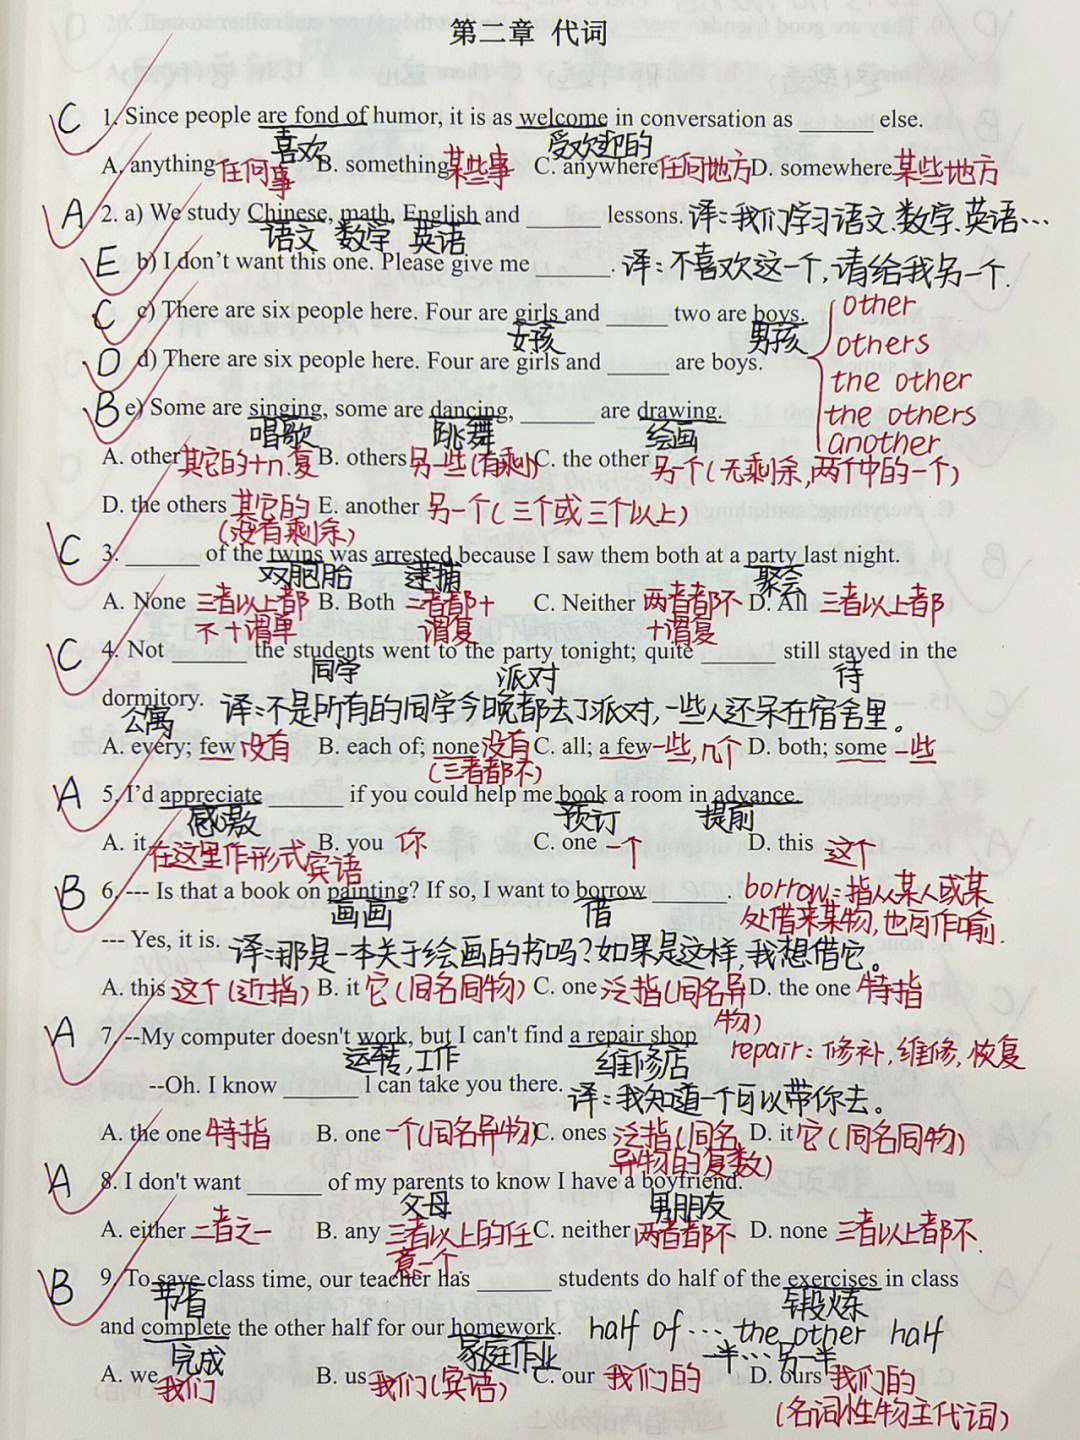 第二章 代词
C 1. Since people are fond of humor, it is as welcome in conversation as ______ else.
喜欢 受欢迎的
A. anything 任何事 B. something 某些事 C. anywhere 任何地方 D. somewhere 某些地方
A 2. a) We study Chinese, math, English and ______ lessons. 译:我们学习语文.数学.英语…
语文 数学 英语
E b) I don't want this one. Please give me ______. 译:不喜欢这一个,请给我另一个.
C c) There are six people here. Four are girls and _____ two are boys.
女孩 男孩
other
others
the other
the others
another
D d) There are six people here. Four are girls and _____ are boys.
B e) Some are singing, some are dancing, ______ are drawing.
唱歌 跳舞 绘画
A. other 其它的+n.复 B. others 另一些(有剩) C. the other 另一个(无剩余,两个中的一个)
D. the others 其它的(没有剩余) E. another 另一个(三个或三个以上)
C 3. ______ of the twins was arrested because I saw them both at a party last night.
双胞胎 逮捕 聚会
A. None 三者以上都不+谓单 B. Both 二者都+谓复 C. Neither 两者都不+谓复 D. All 三者以上都
C 4. Not ______ the students went to the party tonight; quite ______ still stayed in the
同学 派对 待
dormitory. 译:不是所有的同学今晚都去了派对,一些人还呆在宿舍里。
公寓
A. every; few 没有 B. each of; none 没有(三者都不) C. all; a few 一些,几个 D. both; some 一些
A 5. I'd appreciate ______ if you could help me book a room in advance.
感激 预订 提前
A. it 在这里作形式宾语 B. you 你 C. one 一个 D. this 这个
B 6. --- Is that a book on painting? If so, I want to borrow ______.
画画 借
borrow:指从某人或某处借来某物,也可作喻.
--- Yes, it is. 译:那是一本关于绘画的书吗?如果是这样,我想借它。
A. this 这个(近指) B. it 它(同名同物) C. one 泛指(同名异物) D. the one 特指
A 7. --My computer doesn't work, but I can't find a repair shop
运转,工作 维修店
repair:修补,维修,恢复
--Oh. I know ______ I can take you there. 译:我知道一个可以带你去。
A. the one 特指 B. one 一个(同名异物) C. ones 泛指(同名异物的复数) D. it 它(同名同物)
A 8. I don't want ______ of my parents to know I have a boyfriend.
父母 男朋友
A. either 二者之一 B. any 三者以上的任意一个 C. neither 两者都不 D. none 三者以上都不.
B 9. To save class time, our teacher has ______ students do half of the exercises in class
节省 锻炼
and complete the other half for our homework. half of … the other half
完成 家庭作业 一半…另一半
A. we 我们 B. us 我们(宾语) C. our 我们的 D. ours 我们的(名词性物主代词)